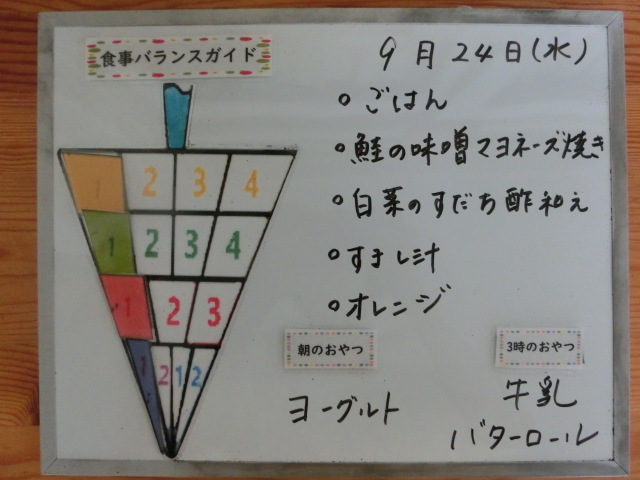 食事バランスガイド
9月24日(水)
ごはん
鮭の味噌マヨネーズ焼き
白菜のすだち酢和え
すまし汁
オレンジ
1 2 3 4
1 2 3 4
1 2 3
1 2 1 2
朝のおやつ
ヨーグルト
3時のおやつ
牛乳
バターロール